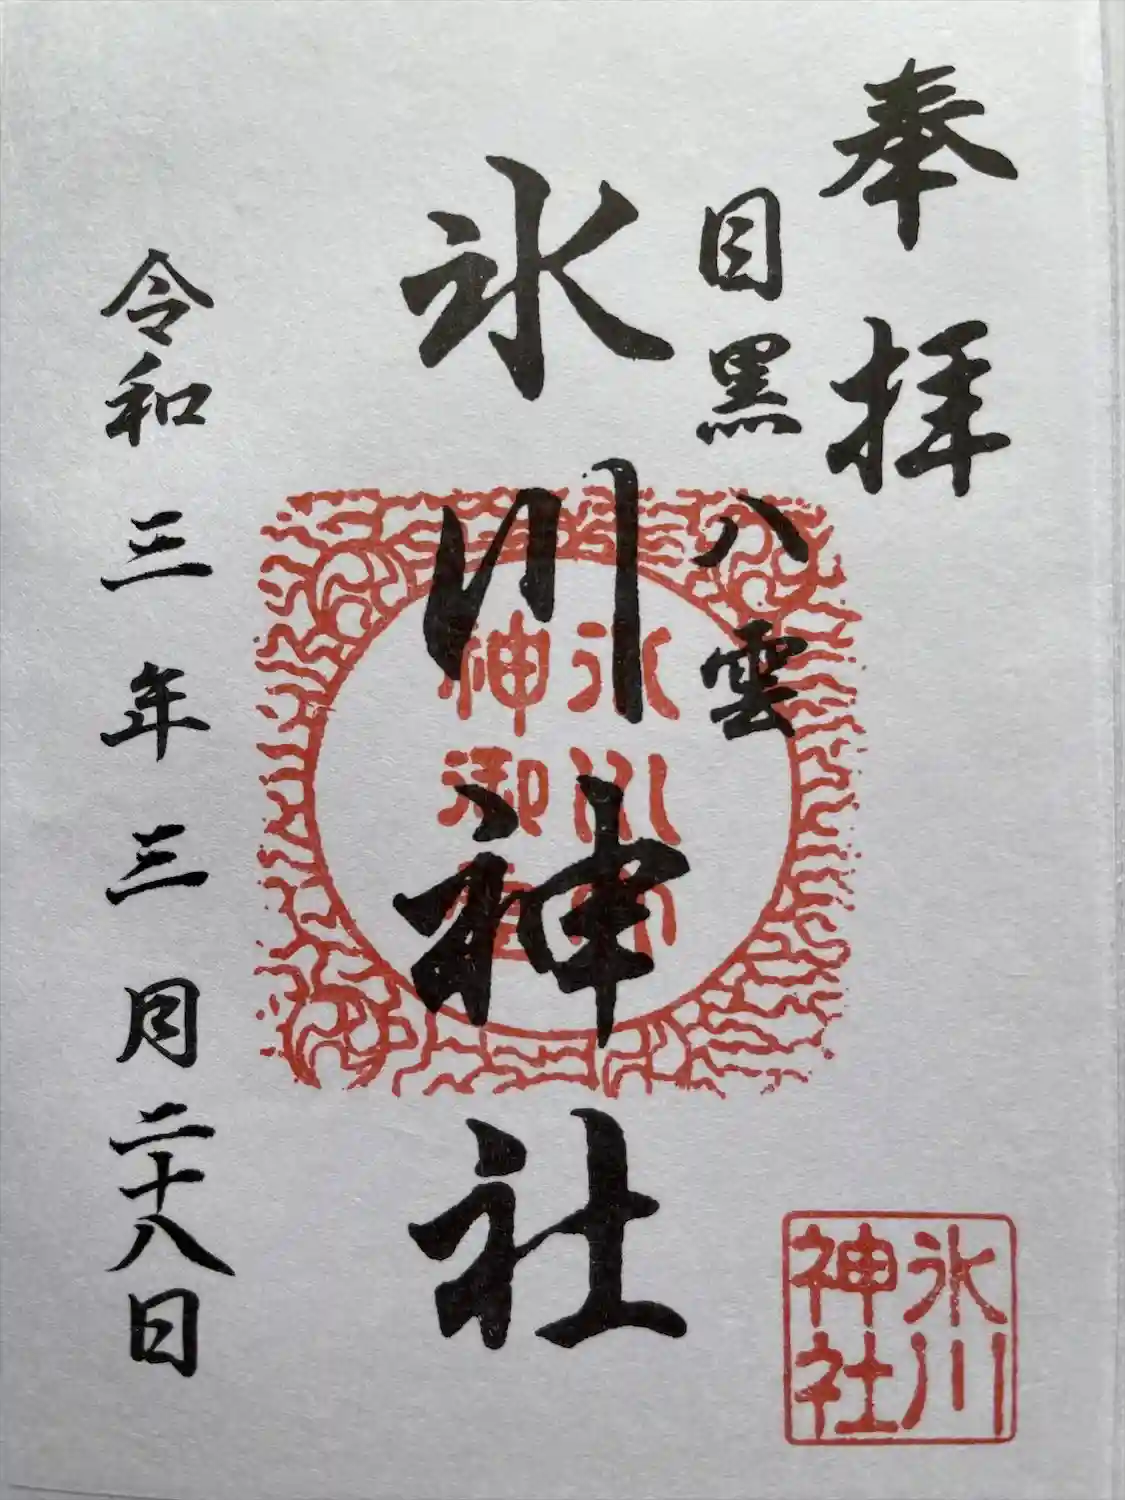 奉拝
目黒八雲
氷川神社
令和三年三月二十八日
氷川
神社